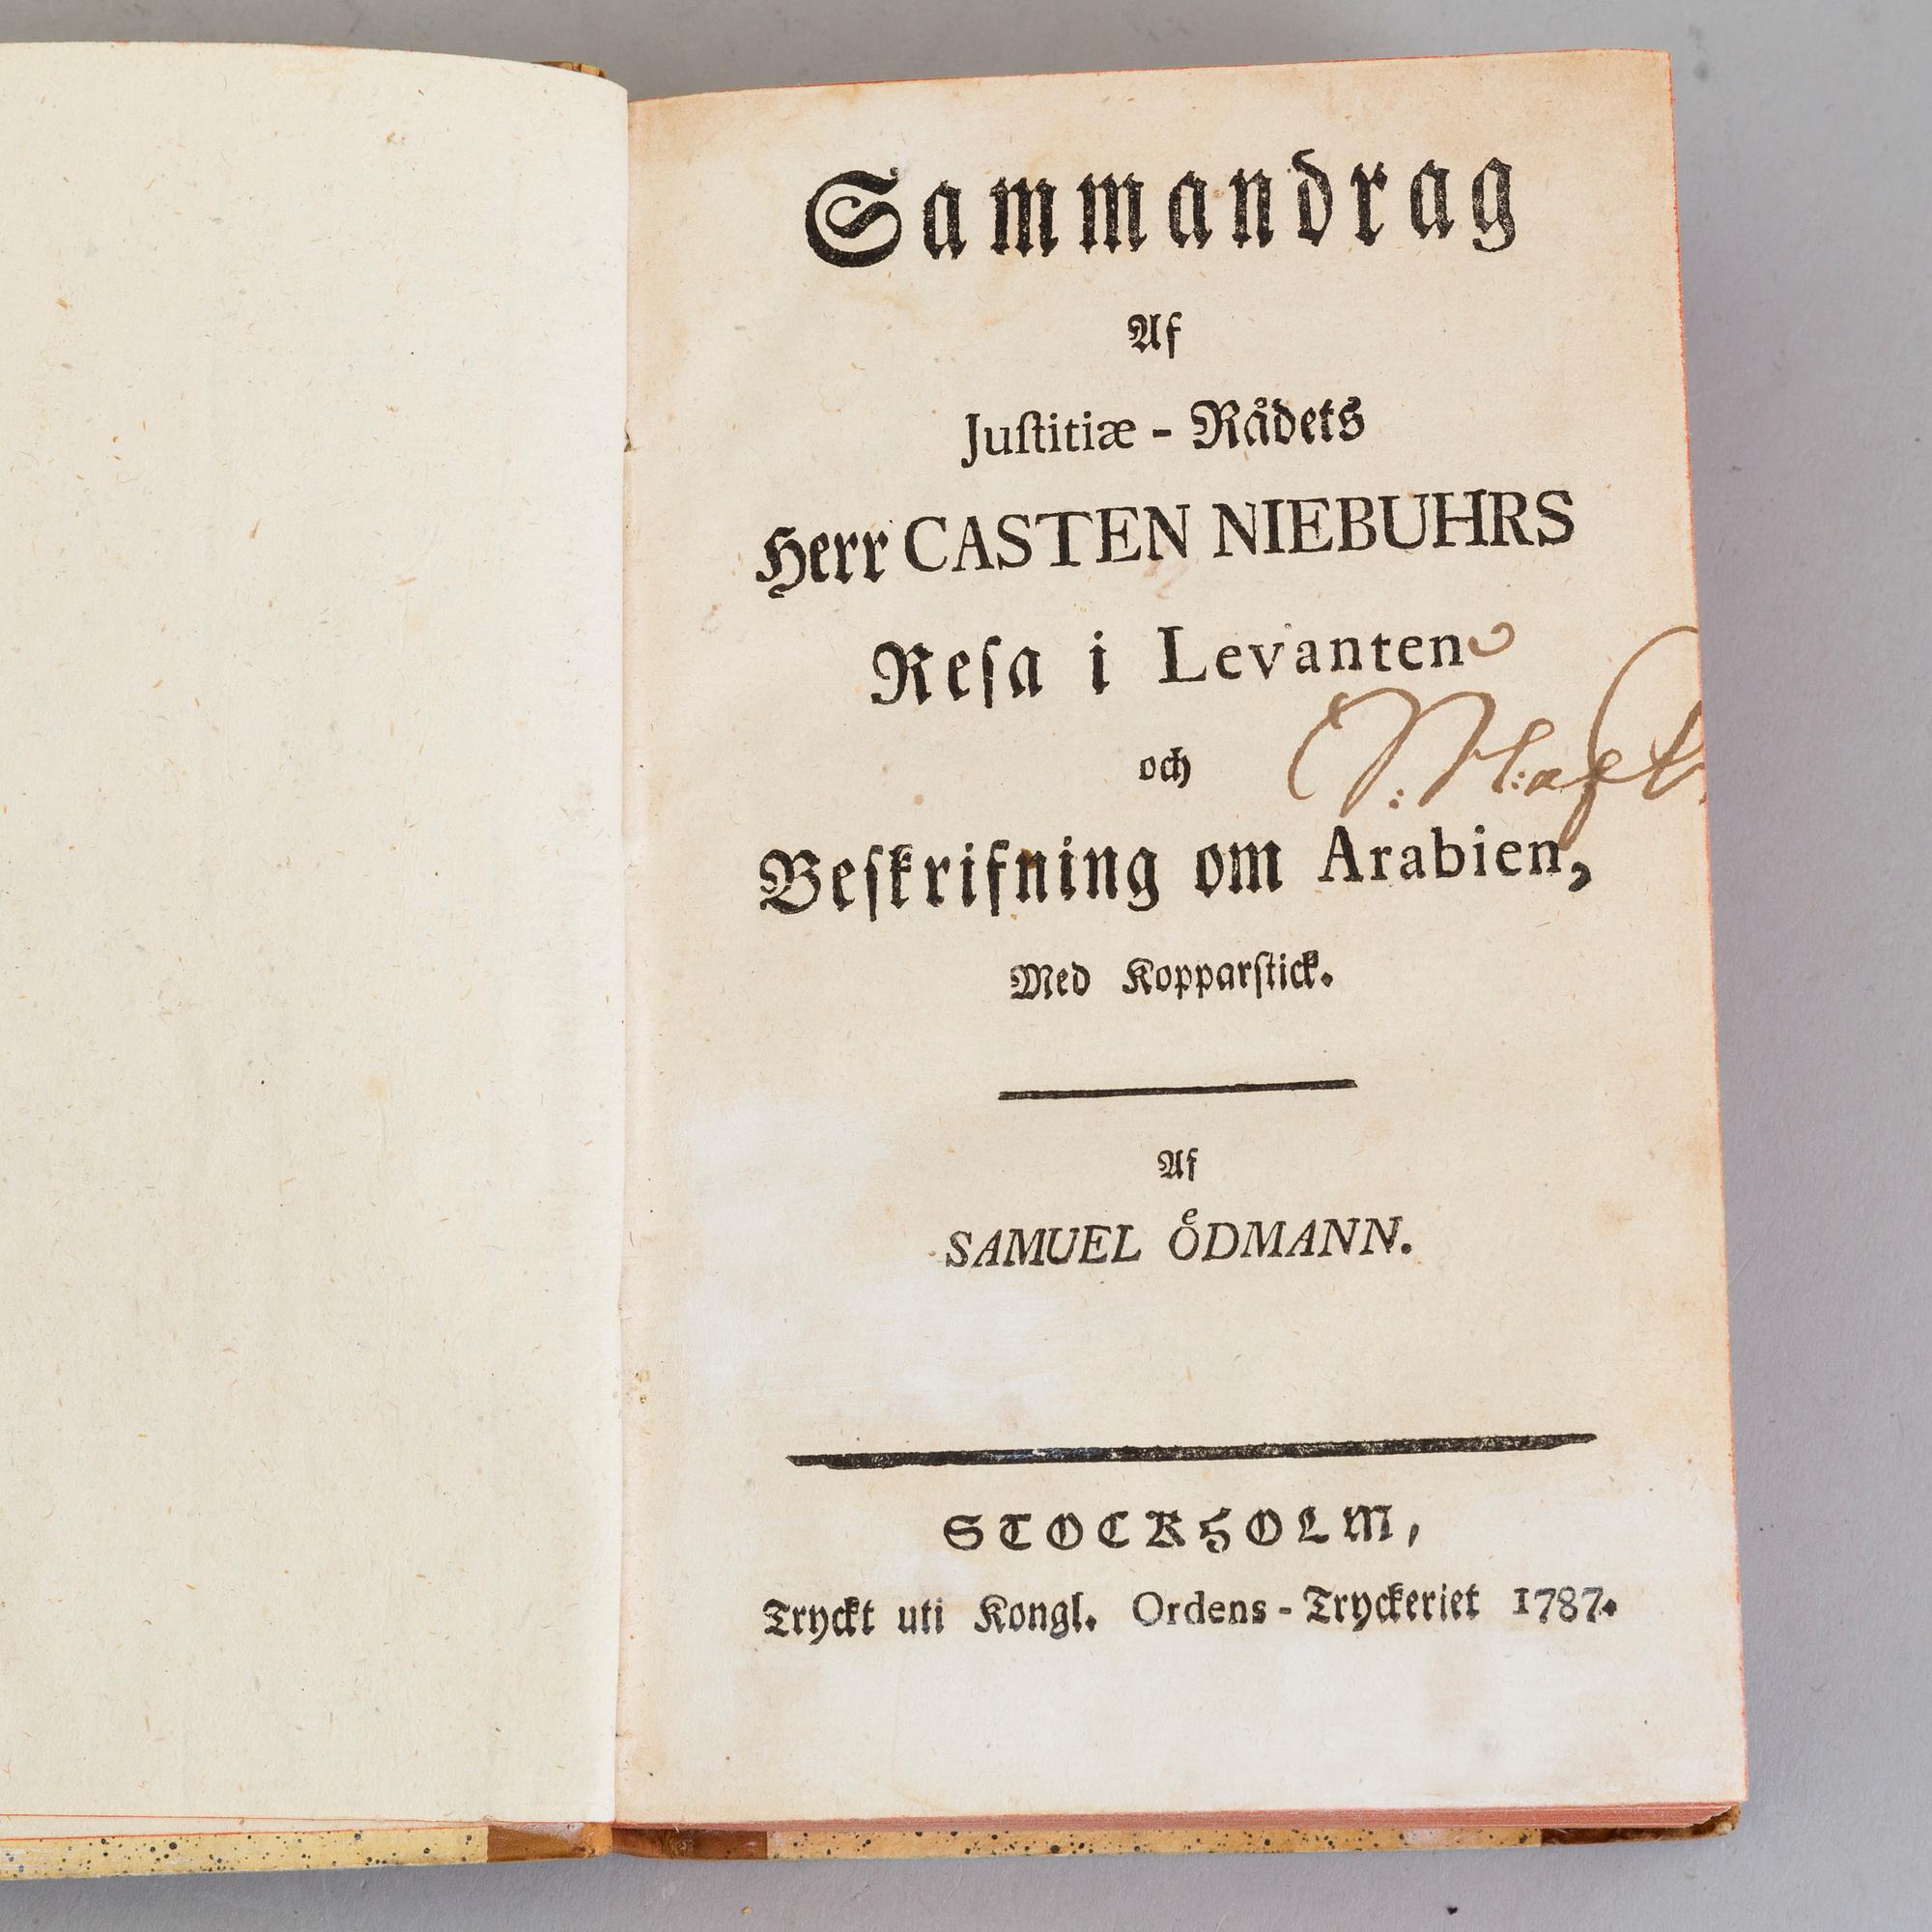 Sammandrag
Af
Juſtitiæ - Rådets
Herr CASTEN NIEBUHRS
Reſa i Levanten
och
Beſkrifning om Arabien,
Med Kopparſtick.
Af
SAMUEL OͤDMANN.
STOCKHOLM,
Tryckt uti Kongl. Ordens - Tryckeriet 1787.